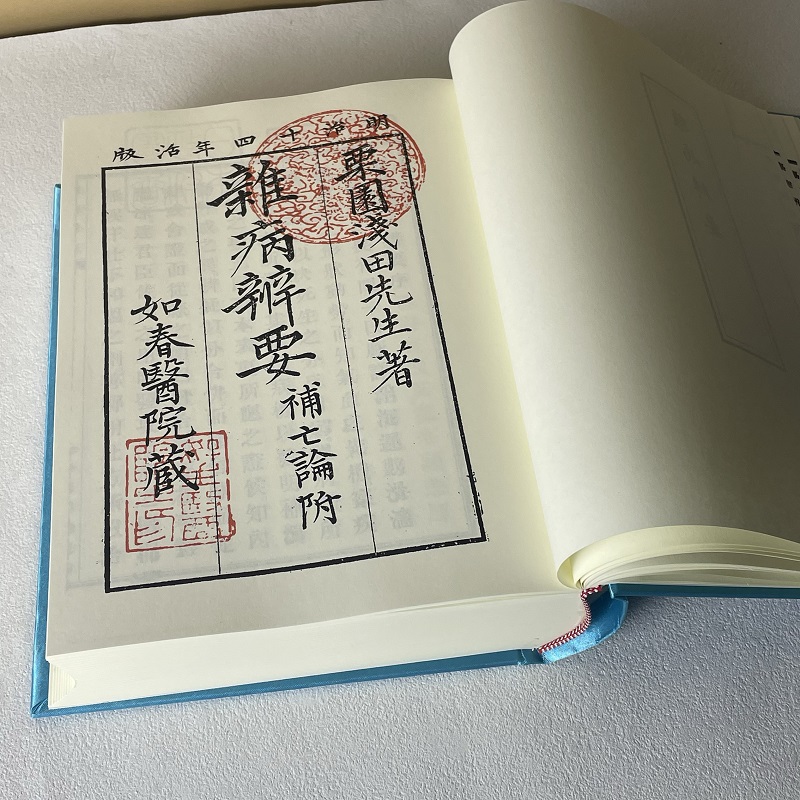 明治十四年活版
栗園淺田先生著
雜病辨要
補亡論附
如春醫院蔵